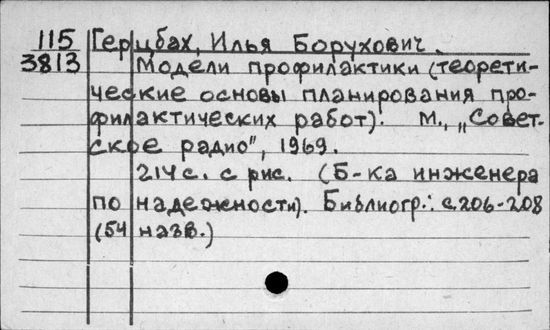 115 Герцбах, Илья Борухович.
3813 Модели профилактики (теорети-
ческие основы планирования про-
филактических работ). М., „Совет-
ское радио", 1969.
214 с. с рис. (Б-ка инженера
по надежности). Библиогр.: с.206-208
(54 назв.)